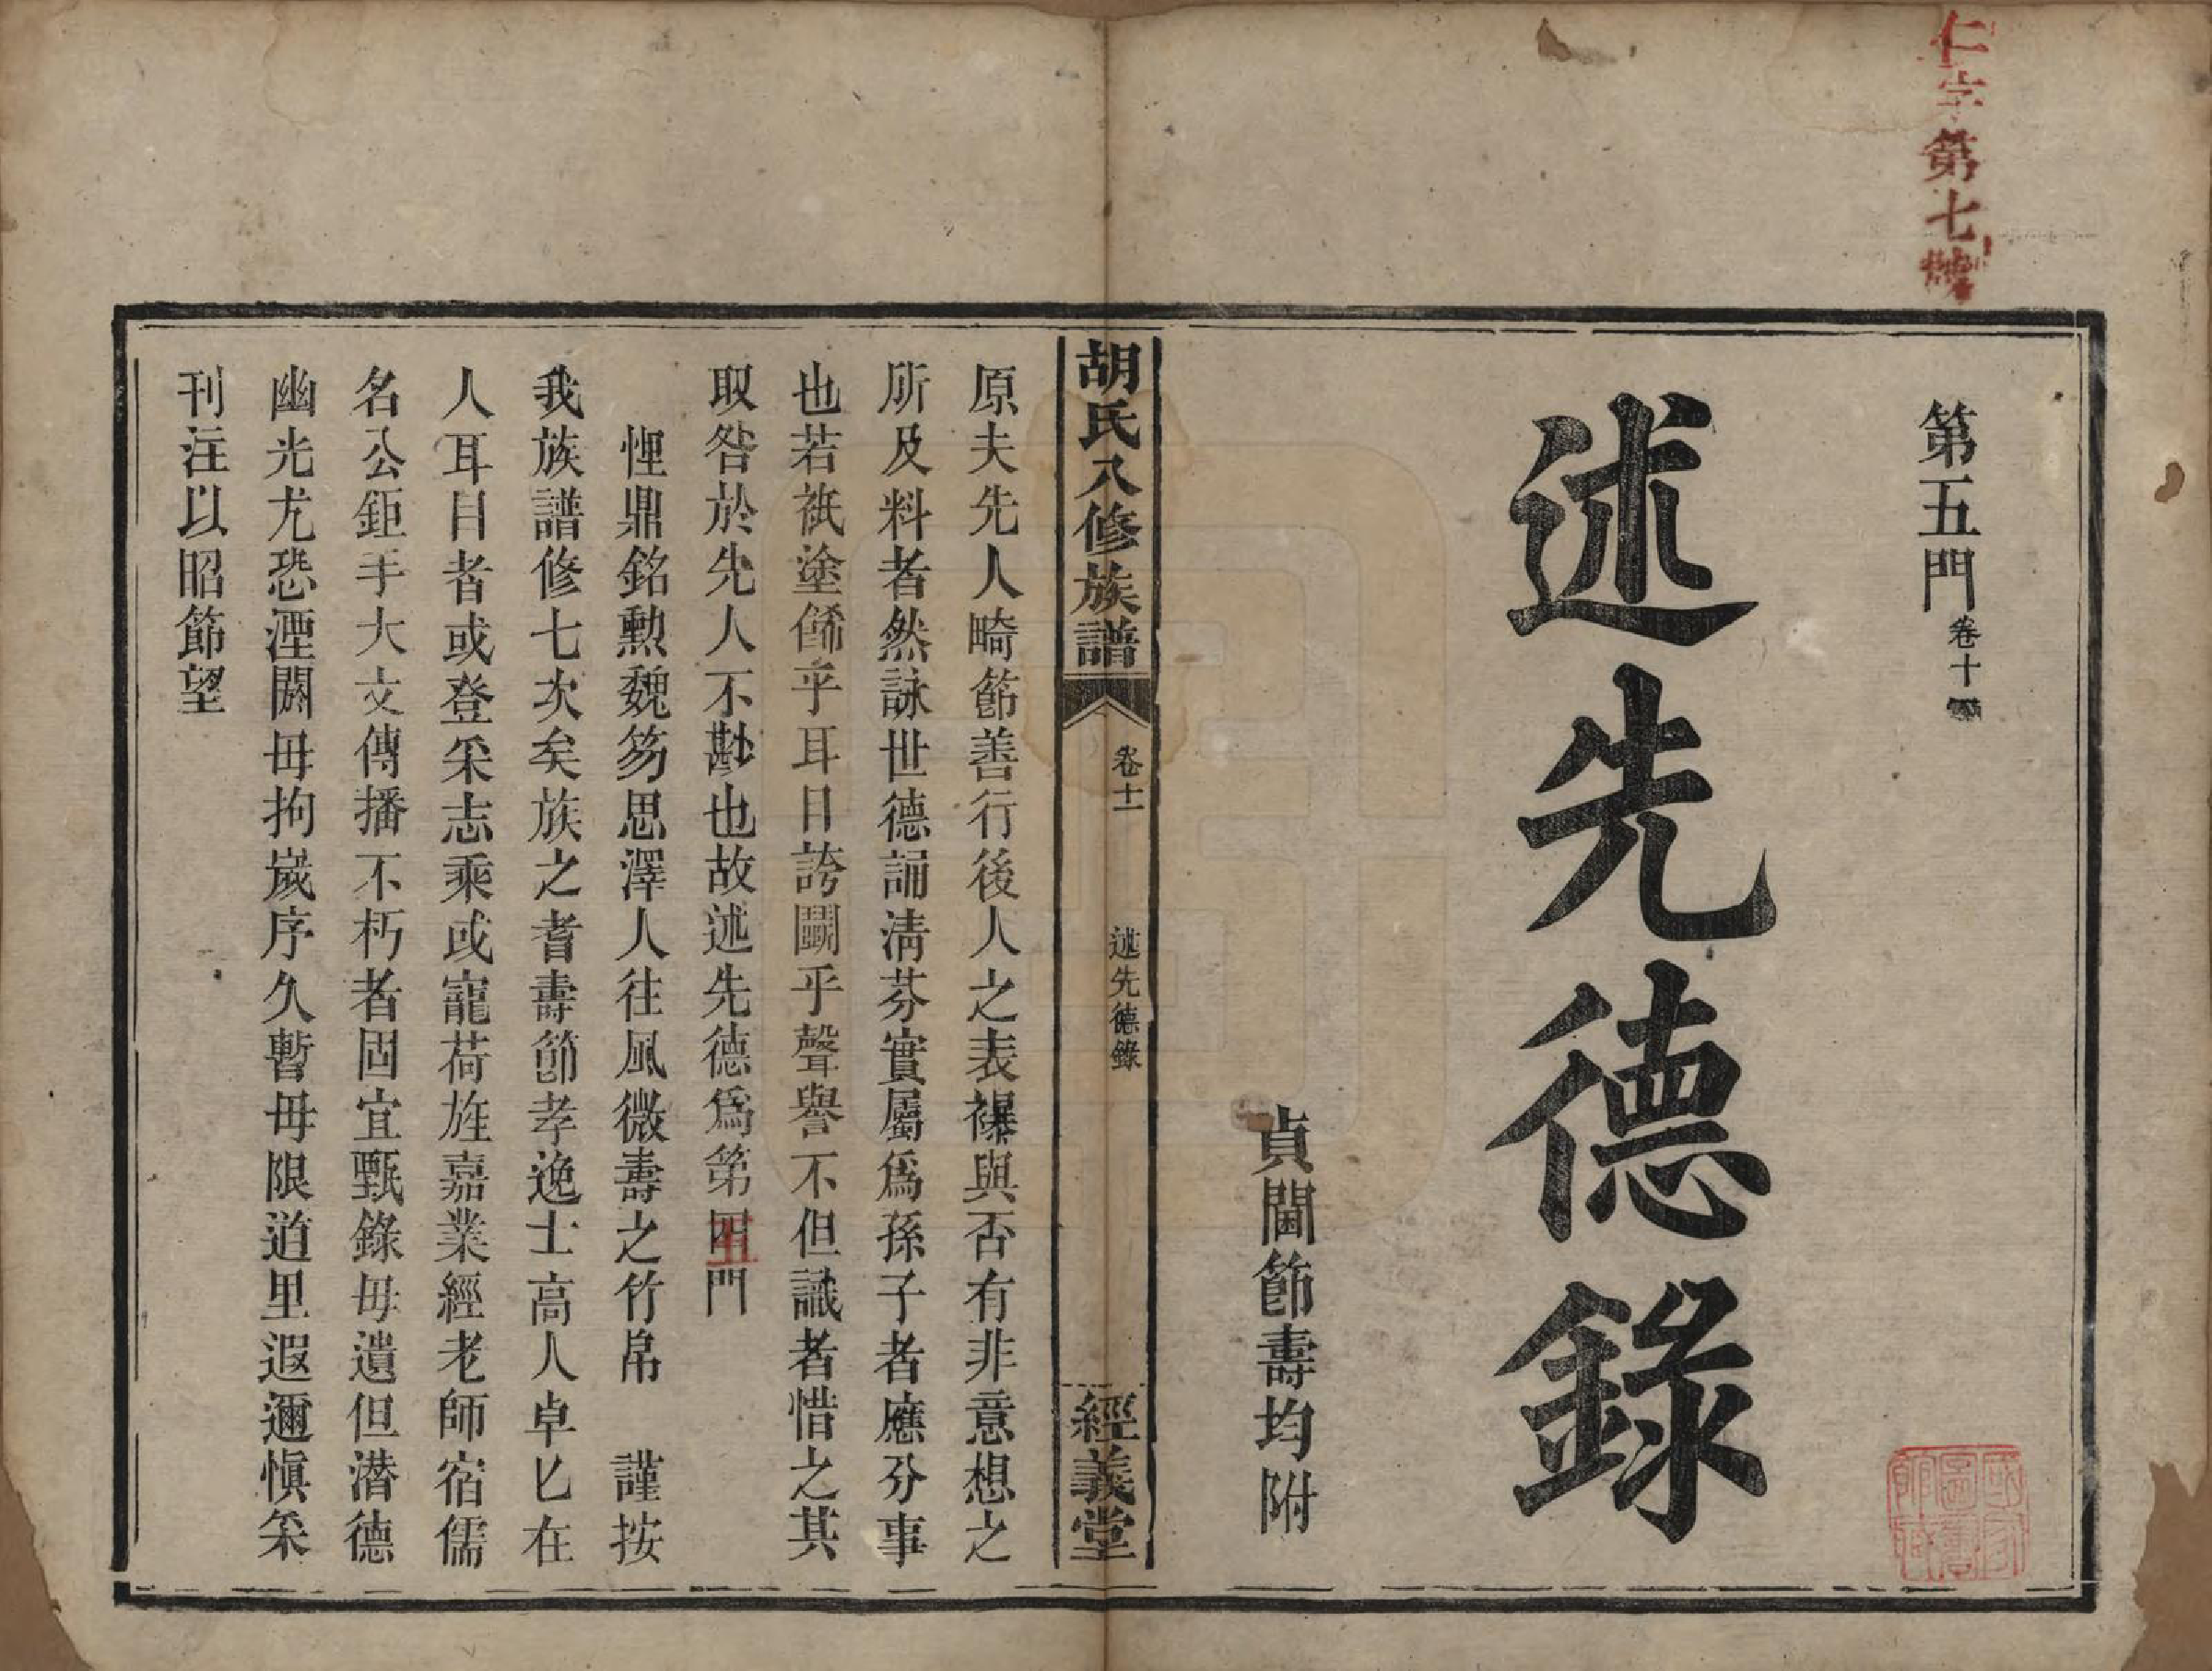 仁字第七
第五門卷十
述先德錄
貞閫節壽均附
胡氏八修族譜
卷十一
述先德錄
經義堂
原夫先人畸節善行後人之表襮與否有非意想之
所及料者然詠世德誦淸芬實屬爲孫子者應分事
也若祇塗餙乎耳目誇鬭乎聲譽不但識者惜之其
取咎於先人不尠也故述先德爲第五門
悝鼎銘勲魏笏思澤人往風微壽之竹帛　謹按
我族譜修七次矣族之耆壽節孝逸士高人卓匕在
人耳目者或登采志乘或寵荷旌嘉業經老師宿儒
名公鉅手大文傳播不朽者固宜甄錄毋遺但潛德
幽光尤恐湮闕毋拘嵗序久暫毋限道里遐邇愼采
刊注以昭節望
國家圖書館藏